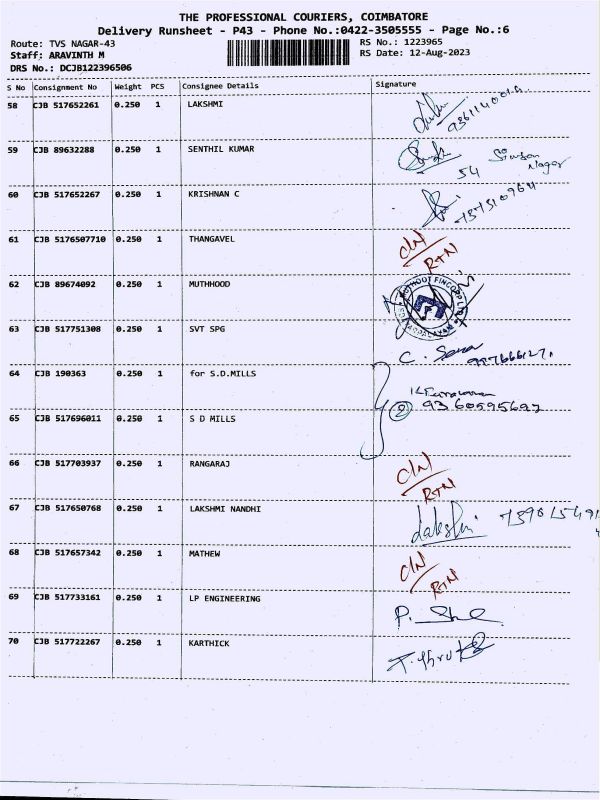 THE PROFESSIONAL COURIERS, COIMBATORE
Delivery Runsheet - P43 - Phone No.:0422-3505555 - Page No.:6
Route: TVS NAGAR-43
RS No.: 1223965
Staff: ARAVINTH M
RS Date: 12-Aug-2023
DRS No.: DCJB122396506
S No Consignment No Weight PCS Consignee Details Signature
58 CJB 517652261 0.250 1 LAKSHMI
59 CJB 89632288 0.250 1 SENTHIL KUMAR
54 Nagar
60 CJB 517652267 0.250 1 KRISHNAN C
61 CJB 5176507710 0.250 1 THANGAVEL C/N
RTN
62 CJB 89674092 0.250 1 MUTHHOOD
MUTHOOT FINCORP LTD
63 CJB 517751308 0.250 1 SVT SPG
C.
64 CJB 190363 0.250 1 for S.D.MILLS
2 9360595697
65 CJB 517696011 0.250 1 S D MILLS
66 CJB 517703937 0.250 1 RANGARAJ C/N
RTN
67 CJB 517650768 0.250 1 LAKSHMI NANDHI
68 CJB 517657342 0.250 1 MATHEW C/N
RTN
69 CJB 517733161 0.250 1 LP ENGINEERING
P.
70 CJB 517722267 0.250 1 KARTHICK